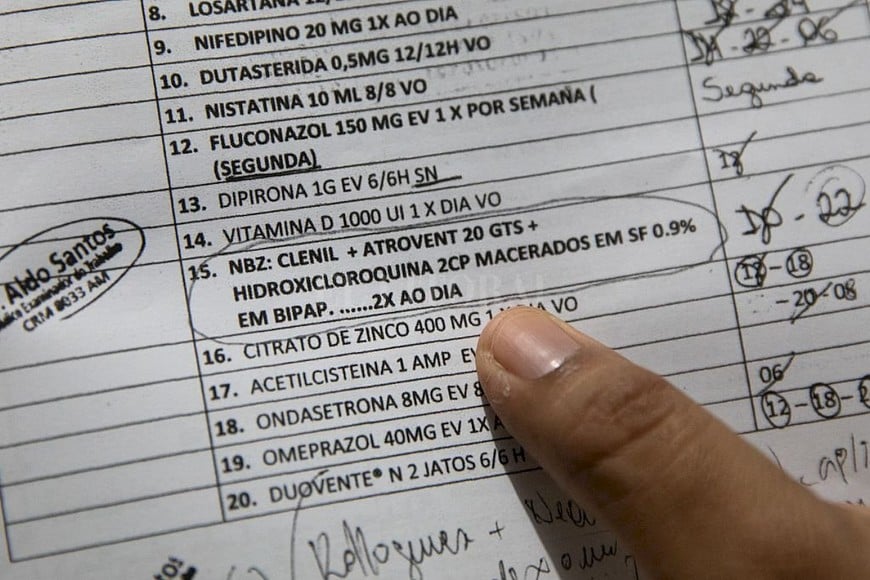 8. LOSARTANA 12/
9. NIFEDIPINO 20 MG 1X AO DIA
10. DUTASTERIDA 0,5MG 12/12H VO
11. NISTATINA 10 ML 8/8 VO
12. FLUCONAZOL 150 MG EV 1 X POR SEMANA (
(SEGUNDA)
Segunda
13. DIPIRONA 1G EV 6/6H SN
14. VITAMINA D 1000 UI 1 X DIA VO
18
15. NBZ: CLENIL + ATROVENT 20 GTS +
HIDROXICLOROQUINA 2CP MACERADOS EM SF 0.9%
EM BIPAP. ......2X AO DIA
- 22
16. CITRATO DE ZINCO 400 MG 1 DIA VO
- 18
17. ACETILCISTEINA 1 AMP EV
- 20 - 08
18. ONDASETRONA 8MG EV 8
19. OMEPRAZOL 40MG EV 1X A
06
20. DUOVENTE® N 2 JATOS 6/6 H
12 - 18 -
. Aldo Santos
CRM 8033 AM